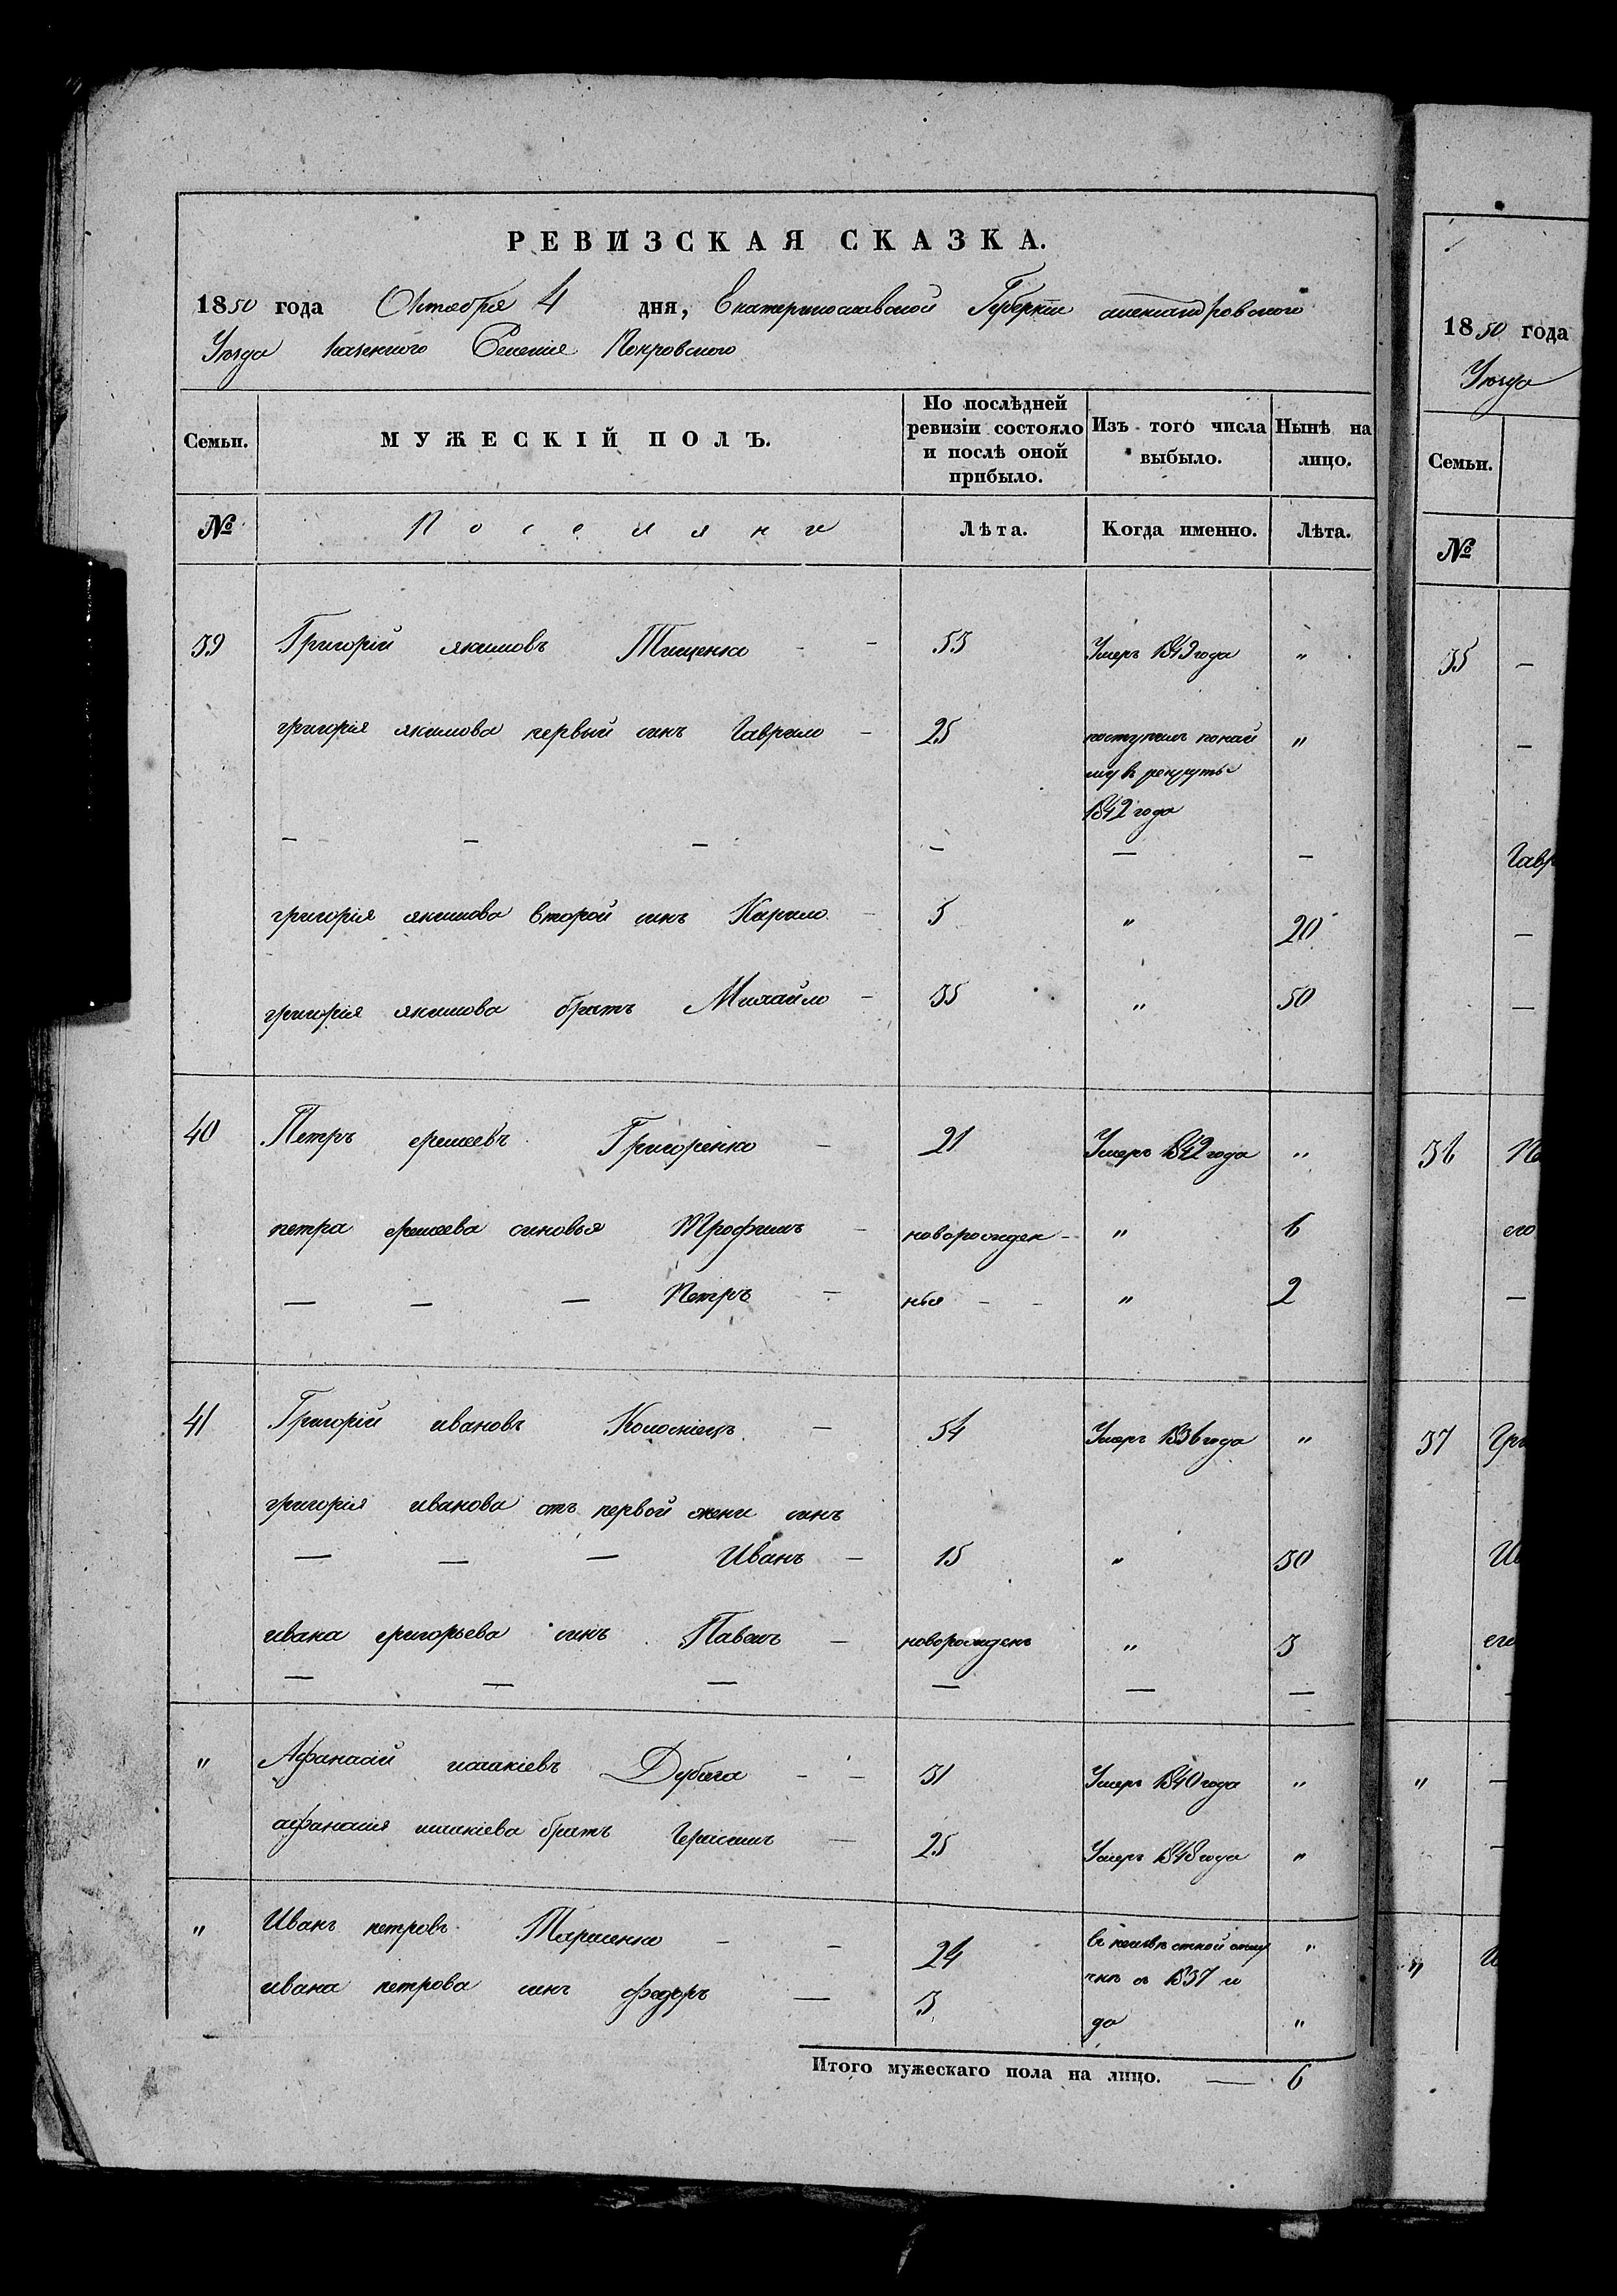 РЕВИЗСКАЯ СКАЗКА.
1850 года Октября 4 дня, Екатеринославской Губернии александровского
Уезда казенного Селения Покровского
Семьи. МУЖЕСКІЙ ПОЛЪ. По послѣдней ревизіи состояло и послѣ оной прибыло. Изъ того числа выбыло. Нынѣ на лицо.
№ Поселяни Лѣта. Когда именно. Лѣта.
39 Григорій якимовъ Тищенко - - 53 Умеръ 1849 года "
григорія якимова первый синъ Гаврило - 25 поступилъ понай "
му в рекруты
1842 года
— — — — — —
григорія якимова второй синъ Кирило - 5 " 20
григорія якимова братъ Михайло - 35 " 50
40 Петръ Григоренко - 21 Умеръ 1842 года "
петра синовья Трофимъ - новорожден- " 6
— — — Петръ - ныя - - " 2
41 Григорій ивановъ Колосніецъ - 54 Умеръ 1836 года "
григорія иванова отъ первой жени синъ
— — — Иванъ — 15 " 30
ивана григорьева синъ Павелъ — новорожденъ " 3
— — — — — —
" Афанасій Дубага - - 31 Умеръ 1840 года "
афанасия братъ Герасимъ — 25 Умеръ 1848 года "
" Иванъ петровъ Тарасенко - - 24 в неизвѣстной отлу "
чкѣ с 1837 го
ивана петрова синъ федоръ — 3 да "
Итого мужескаго пола на лицо. — 6
1850 года
Уезда
Семьи.
№
35 —
—
Гавр
—
—
36 Пе
его
—
37 Гри
Ив
его
" —
—
" И